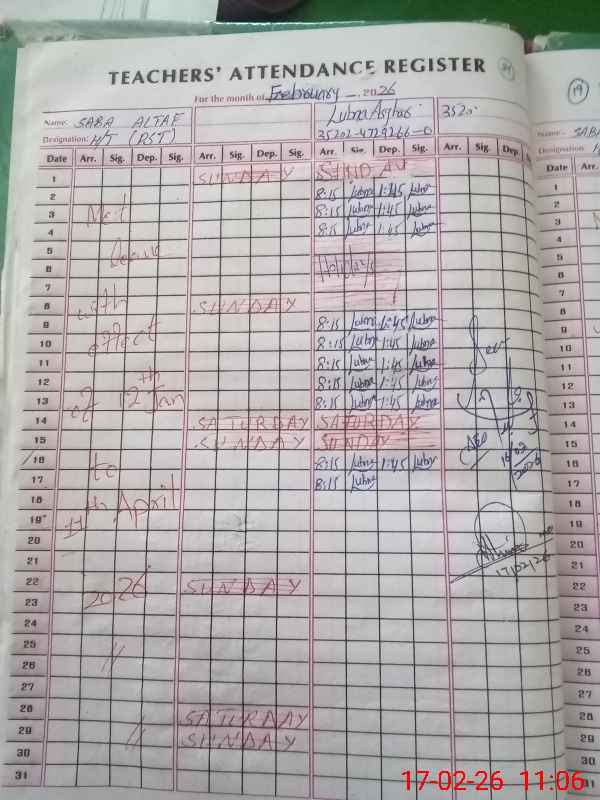 TEACHERS' ATTENDANCE REGISTER
For the month of February 2026
Name: SABA ALTAF
Lubna Asghar
3520
Designation: H/T (PST)
35202-4729266-0
Date Arr. Sig. Dep. Sig. Arr. Sig. Dep. Sig. Arr. Sig. Dep. Sig. Arr. Sig. Dep. Sig.
1 SUNDAY SUNDAY
2 8:15 Lubna 1:45 Lubna
3 8:15 Lubna 1:45 Lubna
4 8:15 Lubna 1:45 Lubna
5
6 Holidays
7
8 SUNDAY
9 8:15 Lubna 1:45 Lubna
10 8:15 Lubna 1:45 Lubna
11 8:15 Lubna 1:45 Lubna
12 8:15 Lubna 1:45 Lubna
13 8:15 Lubna 1:45 Lubna
14 SATURDAY SATURDAY
15 SUNDAY SUNDAY
16 8:15 Lubna 1:45 Lubna
17 8:15 Lubna
18
19
20
21
22 SUNDAY
23
24
25
26
27
28 SATURDAY
29 SUNDAY
30
31
Mat
leave
with
effect
of 12th Jan
to
11th April
2026
//
//
Seen
AEO
16/02/2026
17/02/26
19
Name: SABA
Date Arr.
1
2
3
4
5
6
7
8
9
10
11
12
13
14
15
16
17
18
19
20
21
22
23
24
25
26
27
28
29
30
31
17-02-26 11:06